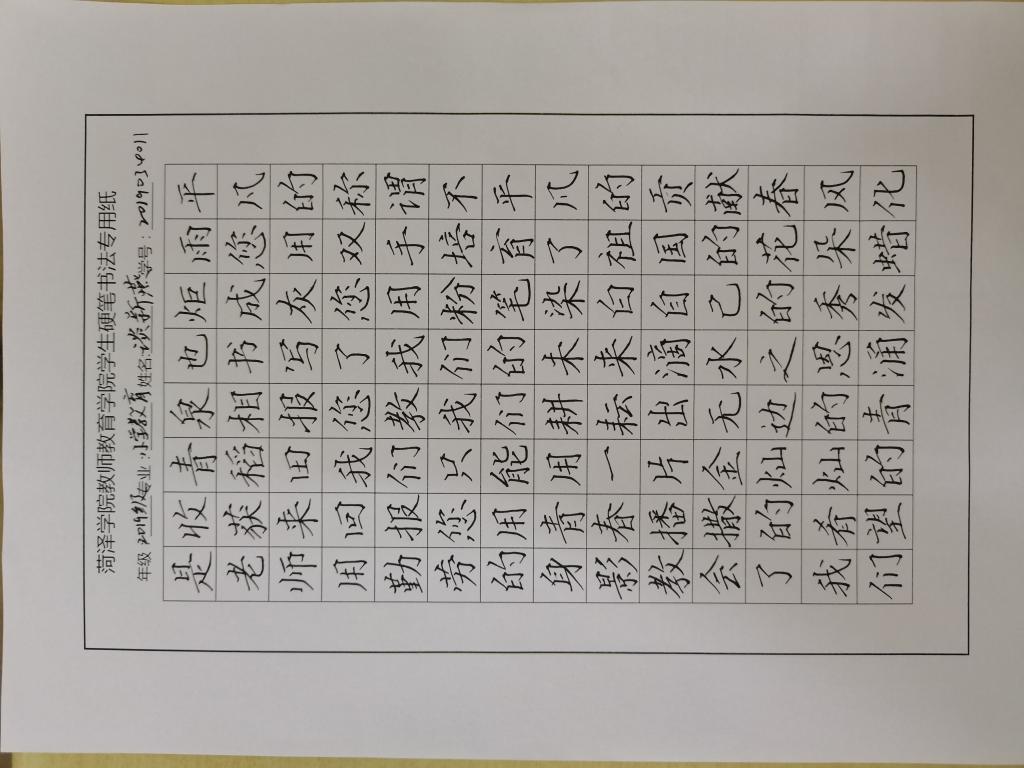 菏泽学院教师教育学院学生硬笔书法专用纸
年级 2019级 专业:小学教育 姓名: 学号:2019034011
平凡的称谓不平凡的贡献春风化
雨您用双手培育了祖国的花朵蜡
炬成灰您用粉笔染白自己的秀发
也书写了我们的未来滴水之恩涌
泉相报您教我们耕耘出无边的青
青稻田我们只能用一片金灿灿的
收获来回报您用青春播撒的希望
是老师用勤劳的身影教会了我们